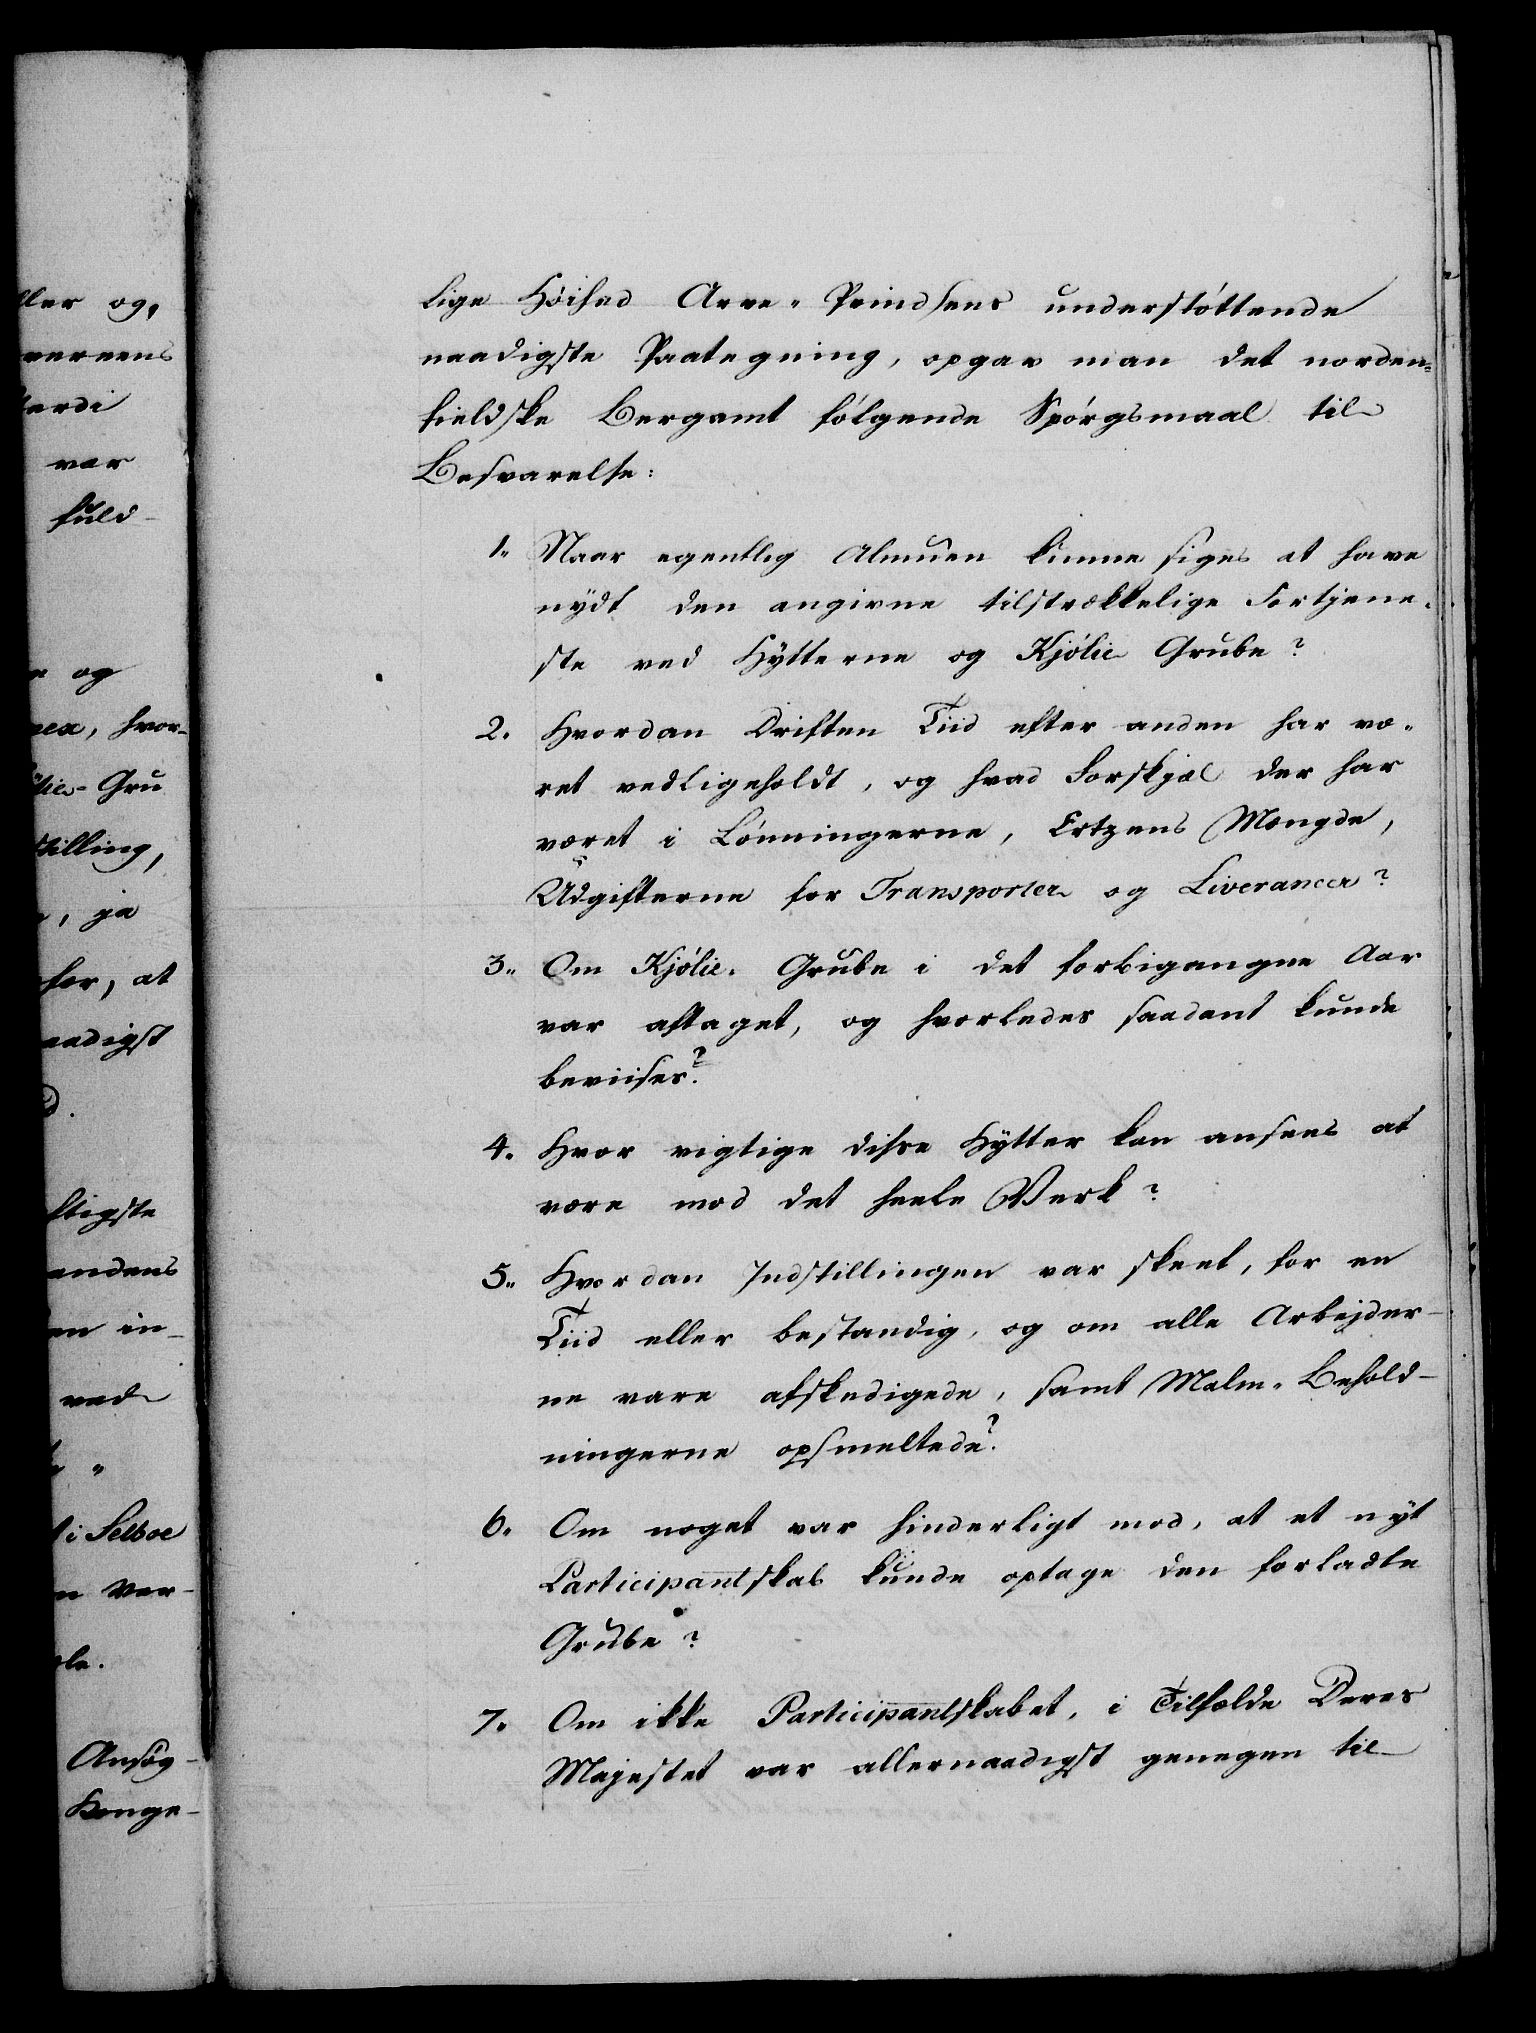 ller og,
verens
erdi
var
fuld-
og
hvor-
Gru
stilling,
, ja
for, at
aadigst
ftigste
andens
en in-
ved
i Selboe
n Ver-
Ansøg-
Konge-
lige Høihed Arve-Prindsens understøttende
naadigste Paategning, opgav man det norden-
fieldske Bergamt følgende Spørgsmaal til
Besvarelse:
1. Naar egentlig Almuen kunne siges at have
nydt den angivne tilstrækkelige Fortjene-
ste ved Hytterne og Kjølie Grube?
2. Hvordan Driften Tiid efter anden har væ-
ret vedligeholdt, og hvad Forskjæl der har
været i Lønningerne, Ertzens Mængde,
Udgifterne for Transporter og Liverancer?
3. Om Kjølie-Grube i det forbigangne Aar
var aftaget, og hvorledes saadant kunde
beviises?
4. Hvor vigtige disse Hytter kan ansees at
være mod det heele Verk?
5. Hvordan Indstillingen var skeet, for en
Tiid eller bestandig, og om alle Arbejder-
ne vare afskedigede, samt Malm-Behold-
ningerne opsmeltede?
6. Om noget var hinderligt mod, at et nyt
Participantskab kunde optage den forladte
Grube?
7. Om ikke Participantskabet, i Tilfælde Deres
Majestet var allernaadigst genegen til